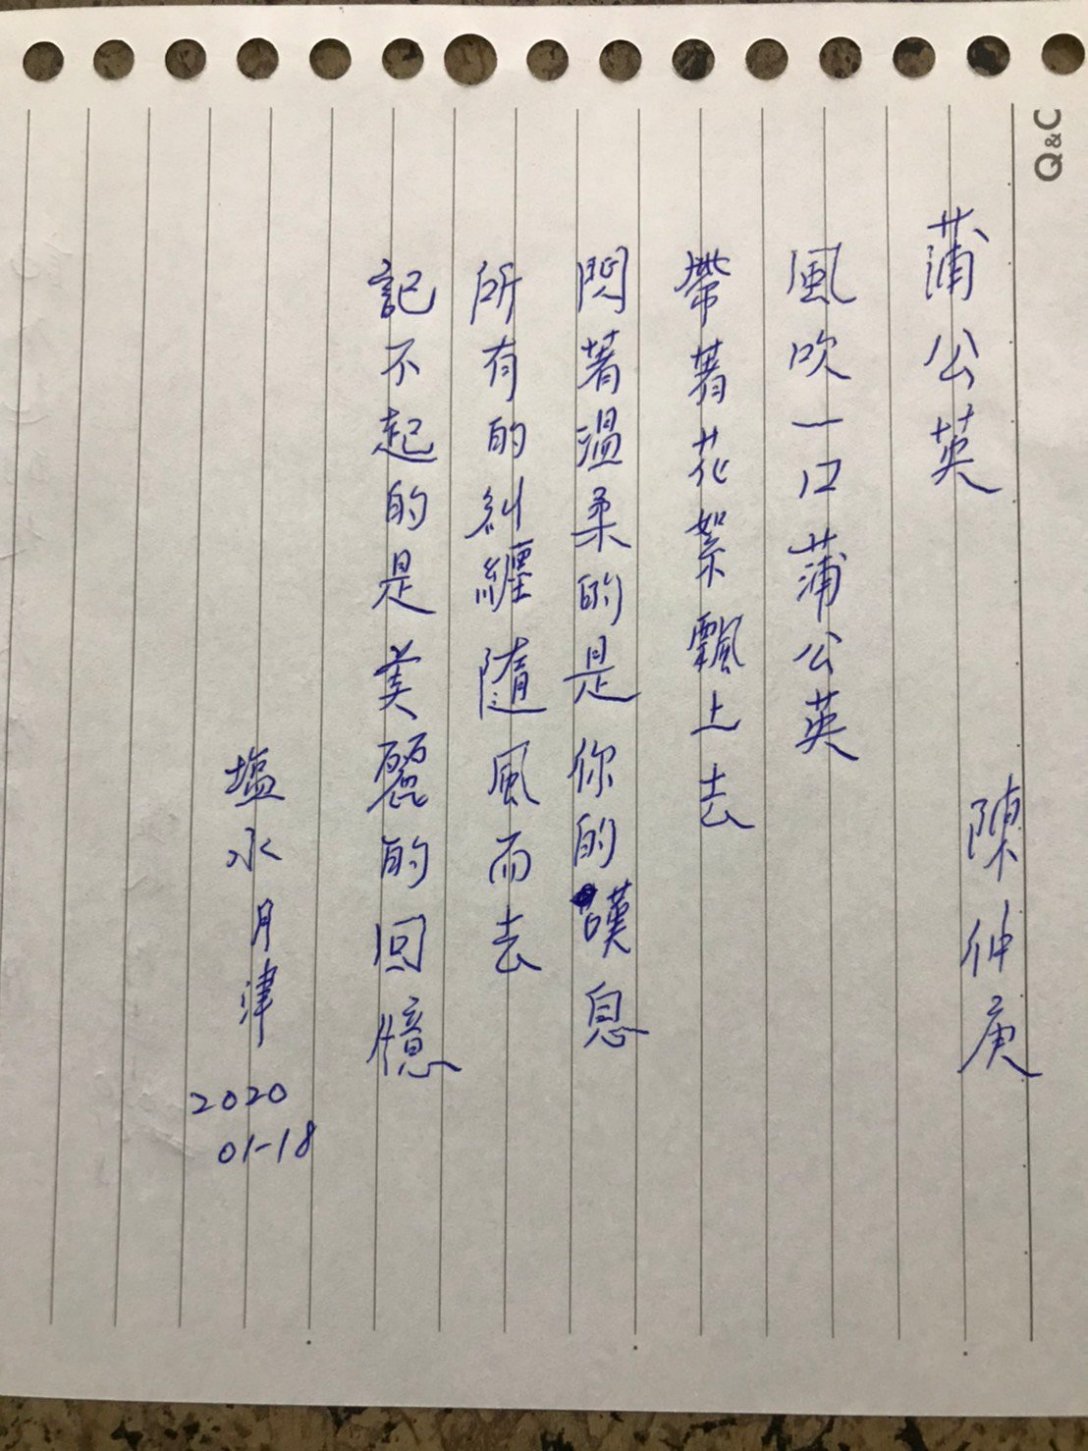 Q&C
蒲公英
陳仲庚
風吹一口蒲公英
帶著花絮飄上去
閃著溫柔的是你的嘆息
所有的糾纏隨風而去
記不起的是美麗的回憶
塩水月津
2020
01-18